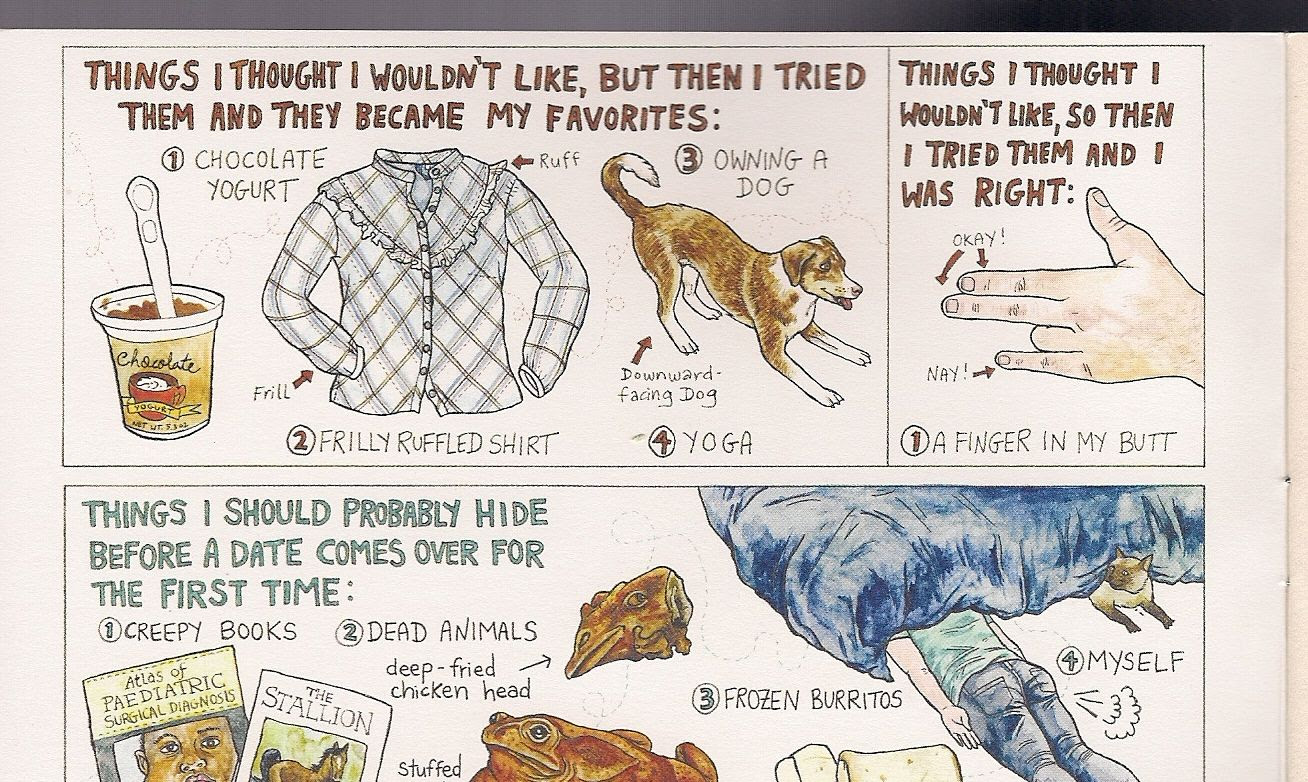 THINGS I THOUGHT I WOULDN'T LIKE, BUT THEN I TRIED
THEM AND THEY BECAME MY FAVORITES:
① CHOCOLATE
YOGURT
Chocolate
YOGURT
NET WT. 5.3 OZ
Ruff
Frill
② FRILLY RUFFLED SHIRT
③ OWNING A
DOG
Downward-
facing Dog
④ YOGA
THINGS I THOUGHT I
WOULDN'T LIKE, SO THEN
I TRIED THEM AND I
WAS RIGHT:
OKAY!
NAY!
① A FINGER IN MY BUTT
THINGS I SHOULD PROBABLY HIDE
BEFORE A DATE COMES OVER FOR
THE FIRST TIME:
① CREEPY BOOKS
Atlas of
PAEDIATRIC
SURGICAL DIAGNOSIS
THE
STALLION
② DEAD ANIMALS
deep-fried
chicken head
stuffed
③ FROZEN BURRITOS
④ MYSELF